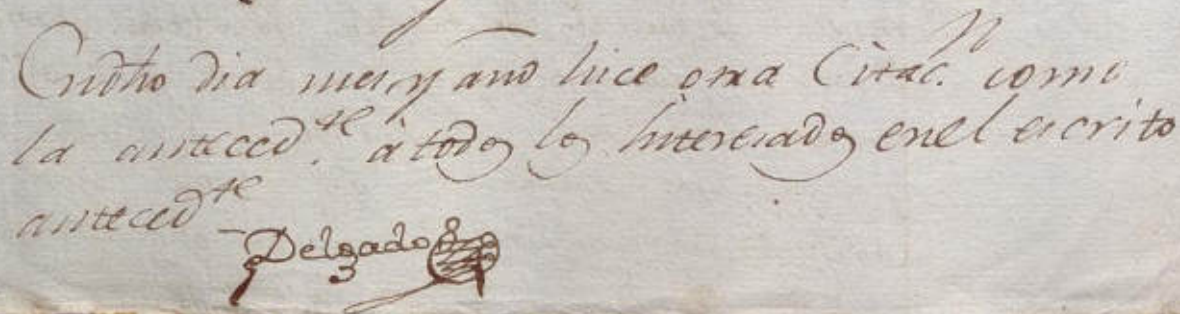 En dho dia mes y año hice otra Citac.n como
la anteced.te à todos los Interesados en el escrito
anteced.te
Delgado